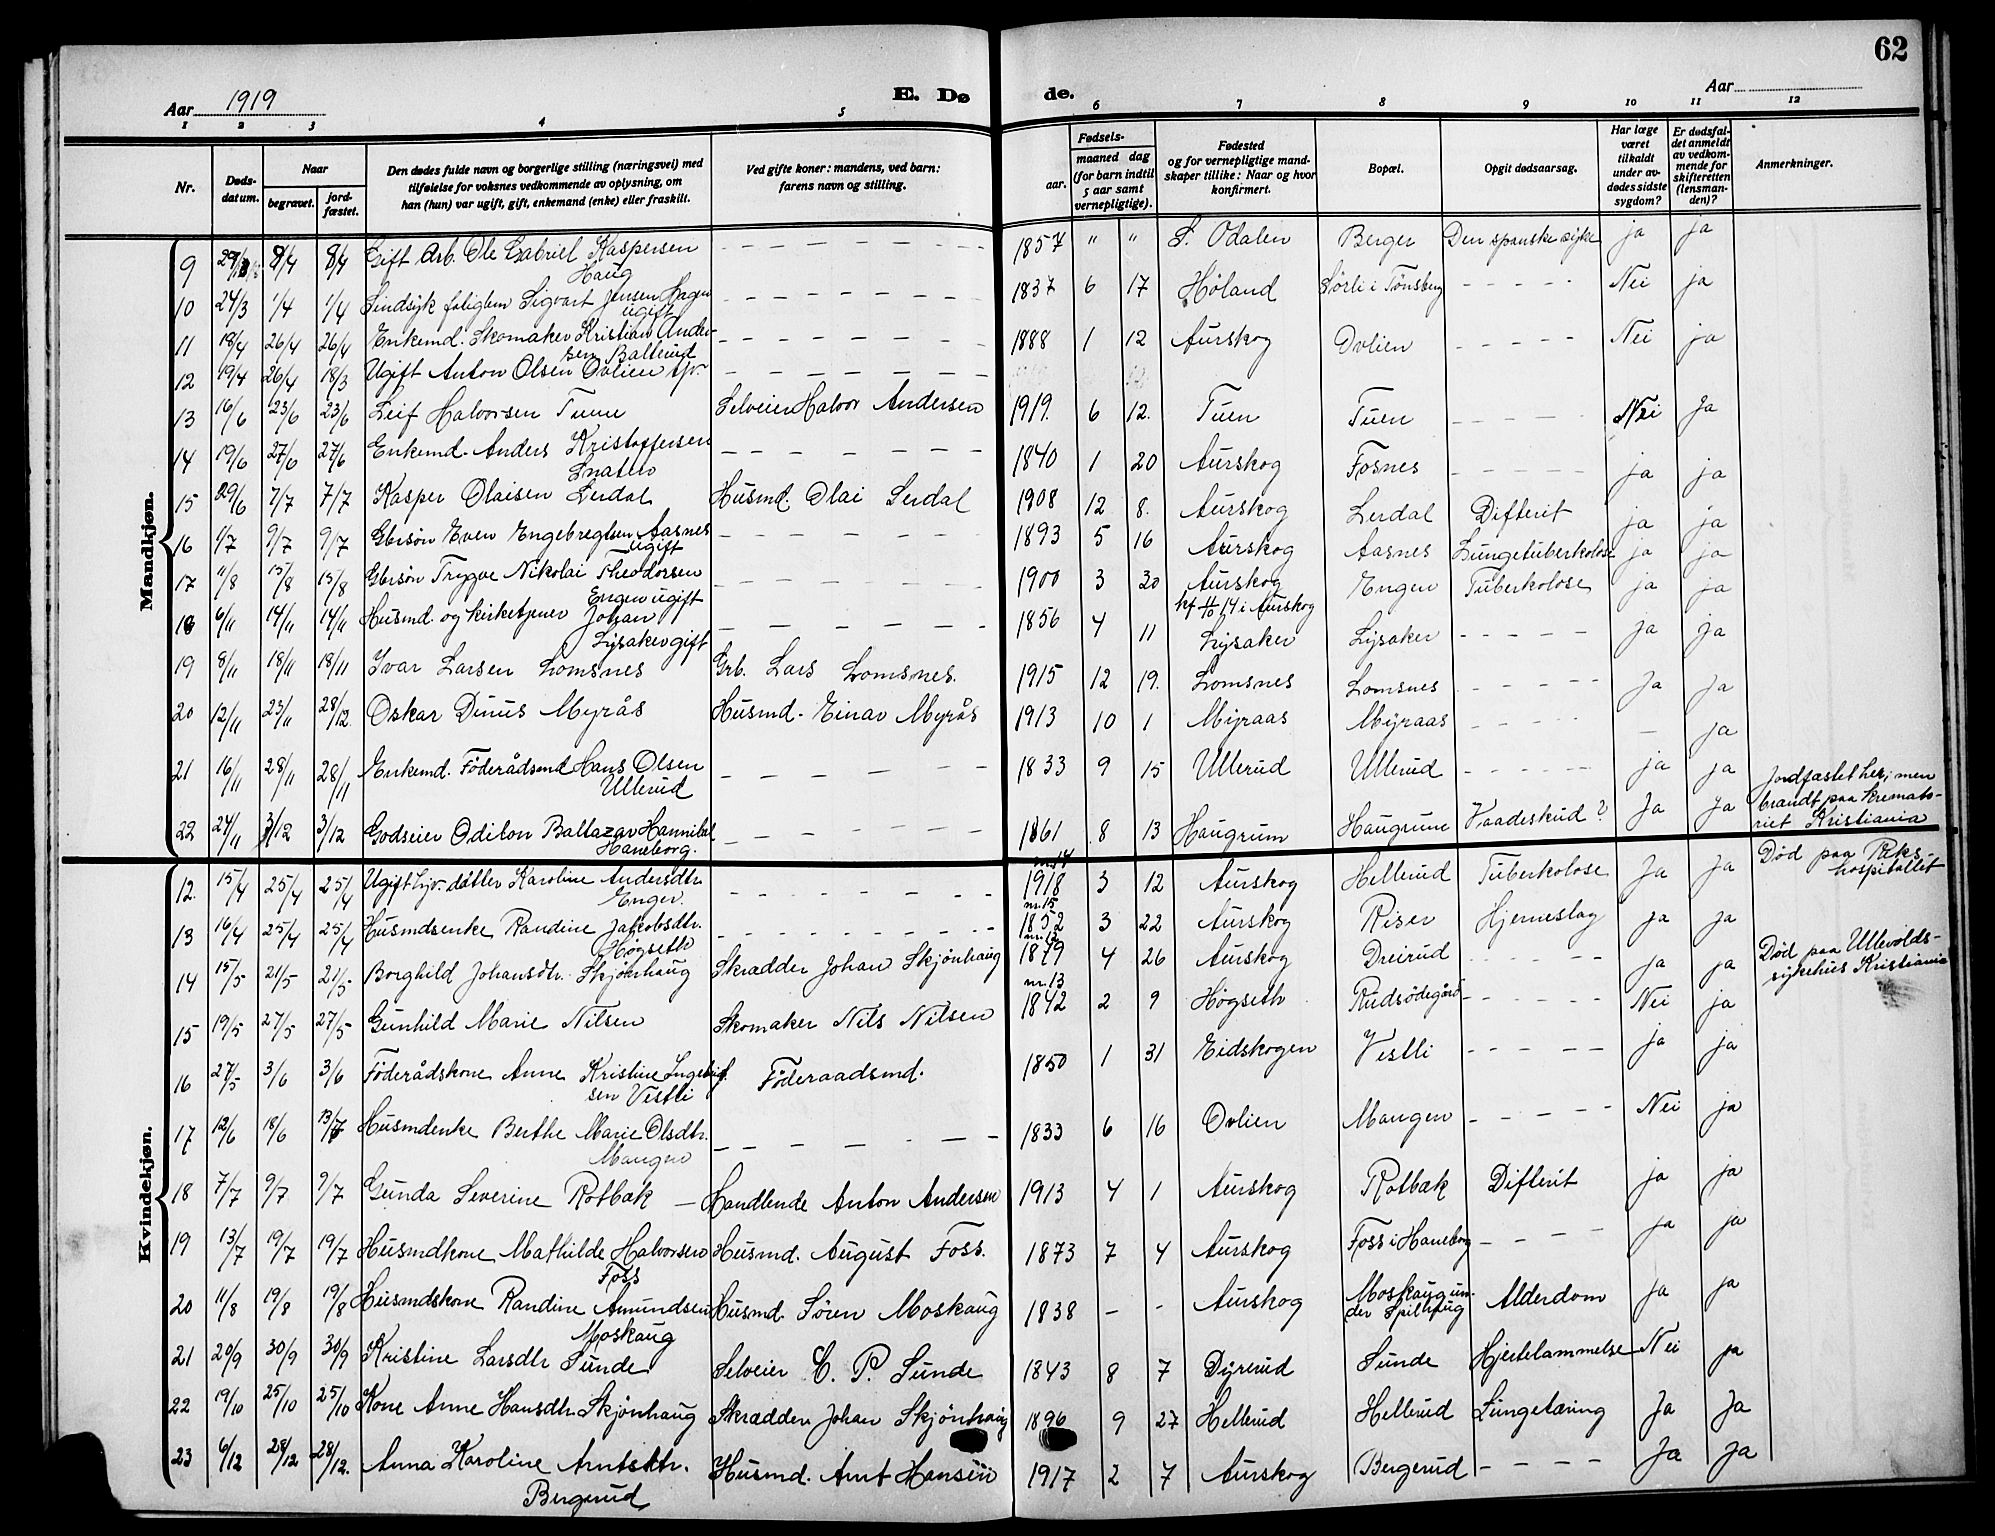 62
Aar 1919
E. Dø de.
Aar
1 2 3 4 5 6 7 8 9 10 11 12
Nr.
Døds-datum.
Naar
begravet.
jord-fæstet.
Den dødes fulde navn og borgerlige stilling (næringsvei) med
tilføielse for voksnes vedkommende av oplysning, om
han (hun) var ugift, gift, enkemand (enke) eller fraskilt.
Ved gifte koner: mandens, ved barn:
farens navn og stilling.
Fødsels-
aar.
maaned dag
(for barn indtil
5 aar samt
vernepligtige).
Fødested
og for vernepligtige mand-
skaper tillike: Naar og hvor
konfirmert.
Bopæl.
Opgit dødsaarsag.
Har læge
været
tilkaldt
under av-
dødes sidste
sygdom?
Er dødsfal-
det anmeldt
av vedkom-
mende for
skifteretten
(lensman-
den)?
Anmerkninger.
Mandkjøn.
9 8/4 8/4 Gift Arb. Ole Gabriel Kaspersen Haug 1857 " " S. Odalen Berger Den spanske syke ja ja
10 24/3 1/4 1/4 Sindsyk faliglem Sigvart Jensen Hagen ugift 1837 6 17 Høland Sörli i Tönsberg Nei ja
11 18/4 26/4 26/4 Enkemd. Skomaker Kristian Ander-
sen Balterud 1888 1 12 Aurskog Ovlien Nei ja
12 19/4 26/4 18/3 Ugift Anton Olsen Ovlien
13 16/6 23/6 23/6 Leif Halvorsen Tuen Selveier Halvor Andersen 1919. 6 12. Tuen Tuen Nei Ja
14 19/6 27/6 27/6 Enkemd. Anders Kristoffersen 1840 1 20 Aurskog Fosnes ja ja
15 29/6 7/7 7/7 Kasper Olaisen Lerdal Husmd. Olai Lerdal 1908 12 8. Aurskog Lerdal Difterit ja ja
16 1/7 9/7 9/7 Gbrsøn Even Engebregtsen Aasnes
ugift 1893 5 16 Aurskog Aasnes Lungetuberkolose ja ja
17 11/8 15/8 15/8 Gbrsøn Trygve Nikolai Theodorsen
Engen ugift 1900 3 20 Aurskog Engen Tuberkolose ja ja
i Aurskog
18 6/11 14/11 14/11 Husmd. og kirketjener Johan
Lysaker gift 1856 4 11 Lysaker Lysaker Ja Ja
19 8/11 18/11 18/11 Ivar Larsen Lomsnes Grb. Lars Lomsnes. 1915 12 19. Lomsnes Lomsnes Ja Ja
20 12/11 23/11 28/12 Oskar Dinus Myrås Husmd. Einar Myrås 1913 10 1 Myraas Myraas – ja
21 16/11 28/11 28/11 Enkemd. Föderådsmd Hans Olsen
Ullerud 1833 9 15 Ullerud Ullerud ja ja
22 24/11 3/12 3/12 Godseier Odilon Baltazar Hannibal
Haneborg. 1861 8 13 Haugrum Haugrum Vaadeskud? Ja Ja Jordfæstet her, men
brændt paa kremato-
riet Kristiania
Kvindekjøn.
12. 15/4 25/4 25/4 Ugift datter Karoline Andersdtr.
Enger. nr. 14 1918 3 12 Aurskog Hellerud Tuberkolose Ja Ja Död paa Riks-
hospitallet
13 16/4 25/4 25/4 Husmdsenke Randine Jakobsdtr.
Høgseth nr. 15 1852 3 22 Aurskog Riser Hjerneslag ja ja
14 15/5 21/5 21/5 Borghild Johansdtr. Skjönhaug Skrædder Johan Skjönhaug nr. 12 1879 4 26 Aurskog Dreirud ja ja Död paa Ullevolds-
sykehus Kristiania
15 19/5 27/5 27/5 Gunhild Marie Nilsen Skomaker Nils Nilsen nr. 13 1842 2 9 Högseth Rudsödegård Nei ja
16 27/5 3/6 3/6 Föderådskone Anne Kristine Ingebrigt-
sen Vestli Föderaadsmd. 1850 1 31 Eidskogen Vestli ja ja
17 12/6 18/6 13/7 Husmdenke Berthe Marie Olsdtr.
Mangen 1833 6 16 Ovlien Mangen Nei ja
18 7/7 9/7 9/7 Gunda Severine Rotbæk – Handlende Anton Andersen 1913 4 1 Aurskog Rotbæk Difterit ja ja
19 13/7 19/7 19/7 Husmdkone Mathilde Halvorsen
Foss Husmd. August Foss. 1873 7 4 Aurskog Foss i Haneborg ja ja
20 11/8 19/8 19/8 Husmdskone Randine Amundsen
Moskaug Husmd. Sören Moskaug 1838 – – Aurskog Moskaug un-
der Spilhaug Alderdom ja ja
21 20/9 30/9 30/9 Kristine Larsdtr Sunde Selveier C. P. Sunde 1843 8 7 Dyrerud Sunde Hjertelammelse Nei ja
22 19/10 25/10 25/10 Kone Anne Hansdtr. Skjönhaug Skrædder Johan Skjönhaug 1896 9 27 Hellerud Hellerud Lungetæring Ja Ja
23 6/12 28/12 28/12. Anna Karoline Arntsdtr.
Bergerud Husmd. Arnt Hansen 1917 2 7 Aurskog Bergerud Ja Ja